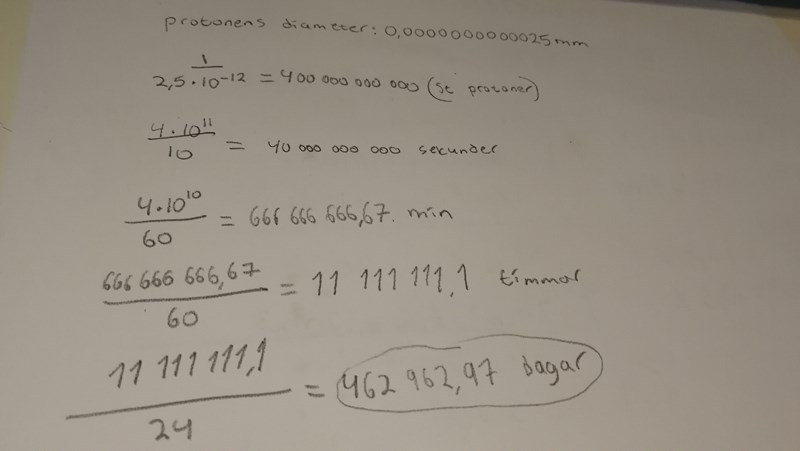 protonens diameter: 0,0000000000025mm
1/2,5·10⁻¹² = 400 000 000 000 (st protoner)
4·10¹¹/10 = 40 000 000 000 sekunder
4·10¹⁰/60 = 666 666 666,67. min
666 666 666,67/60 = 11 111 111,1 timmar
11 111 111,1/24 = 462 962,97 dagar